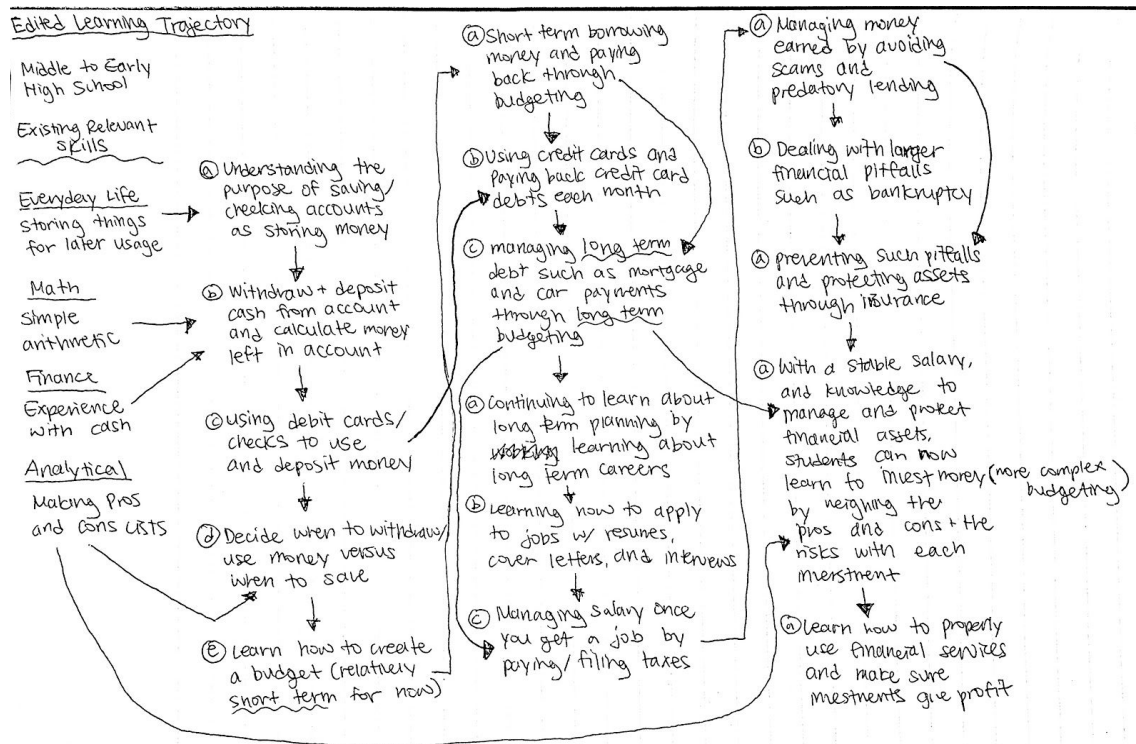 Edited Learning Trajectory
Middle to Early
High School
Existing Relevant
skills
Everyday Life
storing things
for later usage
Math
simple
arithmetic
Finance
Experience
with cash
Analytical
Making Pros
and Cons Lists
ⓐ Understanding the
purpose of saving/
checking accounts
as storing money
ⓑ Withdraw + deposit
cash from account
and calculate money
left in account
ⓒ using debit cards/
checks to use
and deposit money
ⓓ Decide when to withdraw/
use money versus
when to save
ⓔ Learn how to create
a budget (relatively
short term for now)
ⓐ Short term borrowing
money and paying
back through
budgeting
ⓑ Using credit cards and
paying back credit card
debts each month
ⓒ managing long term
debt such as mortgage
and car payments
through long term
budgeting
ⓐ Continuing to learn about
long term planning by
learning about
long term careers
ⓑ Learning how to apply
to jobs w/ resumes,
cover letters, and interviews
ⓒ Managing salary once
you get a job by
paying/filing taxes
ⓐ Managing money
earned by avoiding
scams and
predatory lending
ⓑ Dealing with larger
financial pitfalls
such as bankruptcy
ⓐ preventing such pitfalls
and protecting assets
through insurance
ⓐ With a stable salary,
and knowledge to
manage and protect
financial assets,
students can now
learn to invest money (more complex
budgeting)
by weighing the
pros and cons + the
risks with each
investment
ⓐ Learn how to properly
use financial services
and make sure
investments give profit